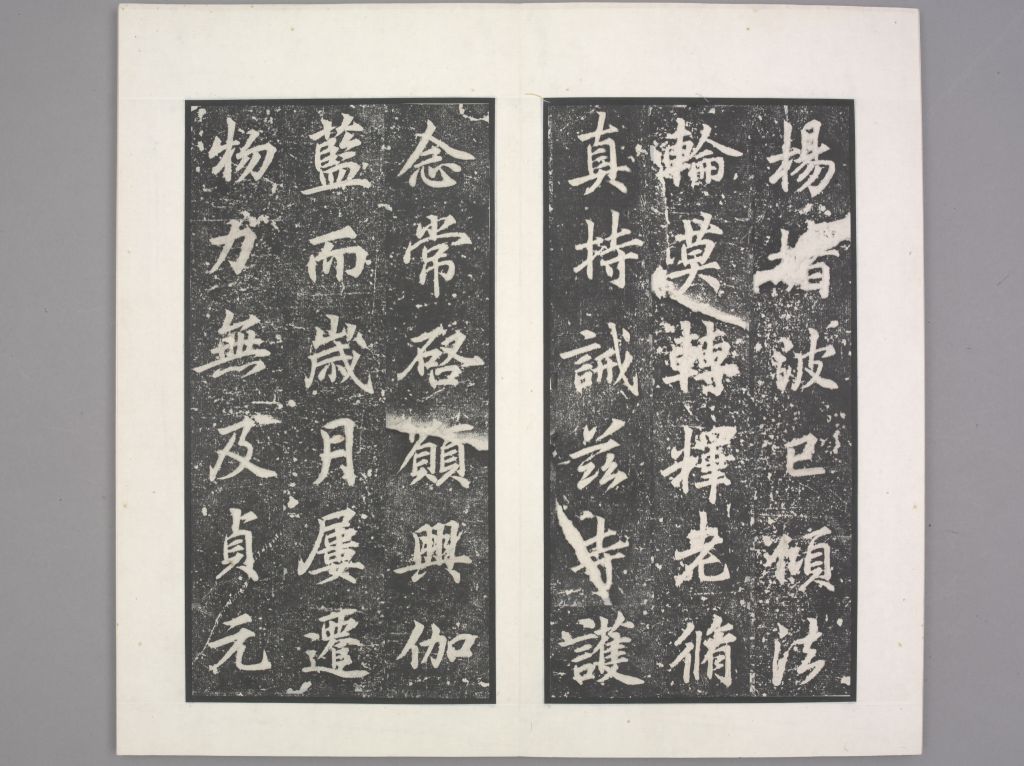 楊堵波已傾法
輪莫轉釋老脩
真持誡茲寺護
念常啓願興伽
藍而歲月屢遷
物力無及貞元